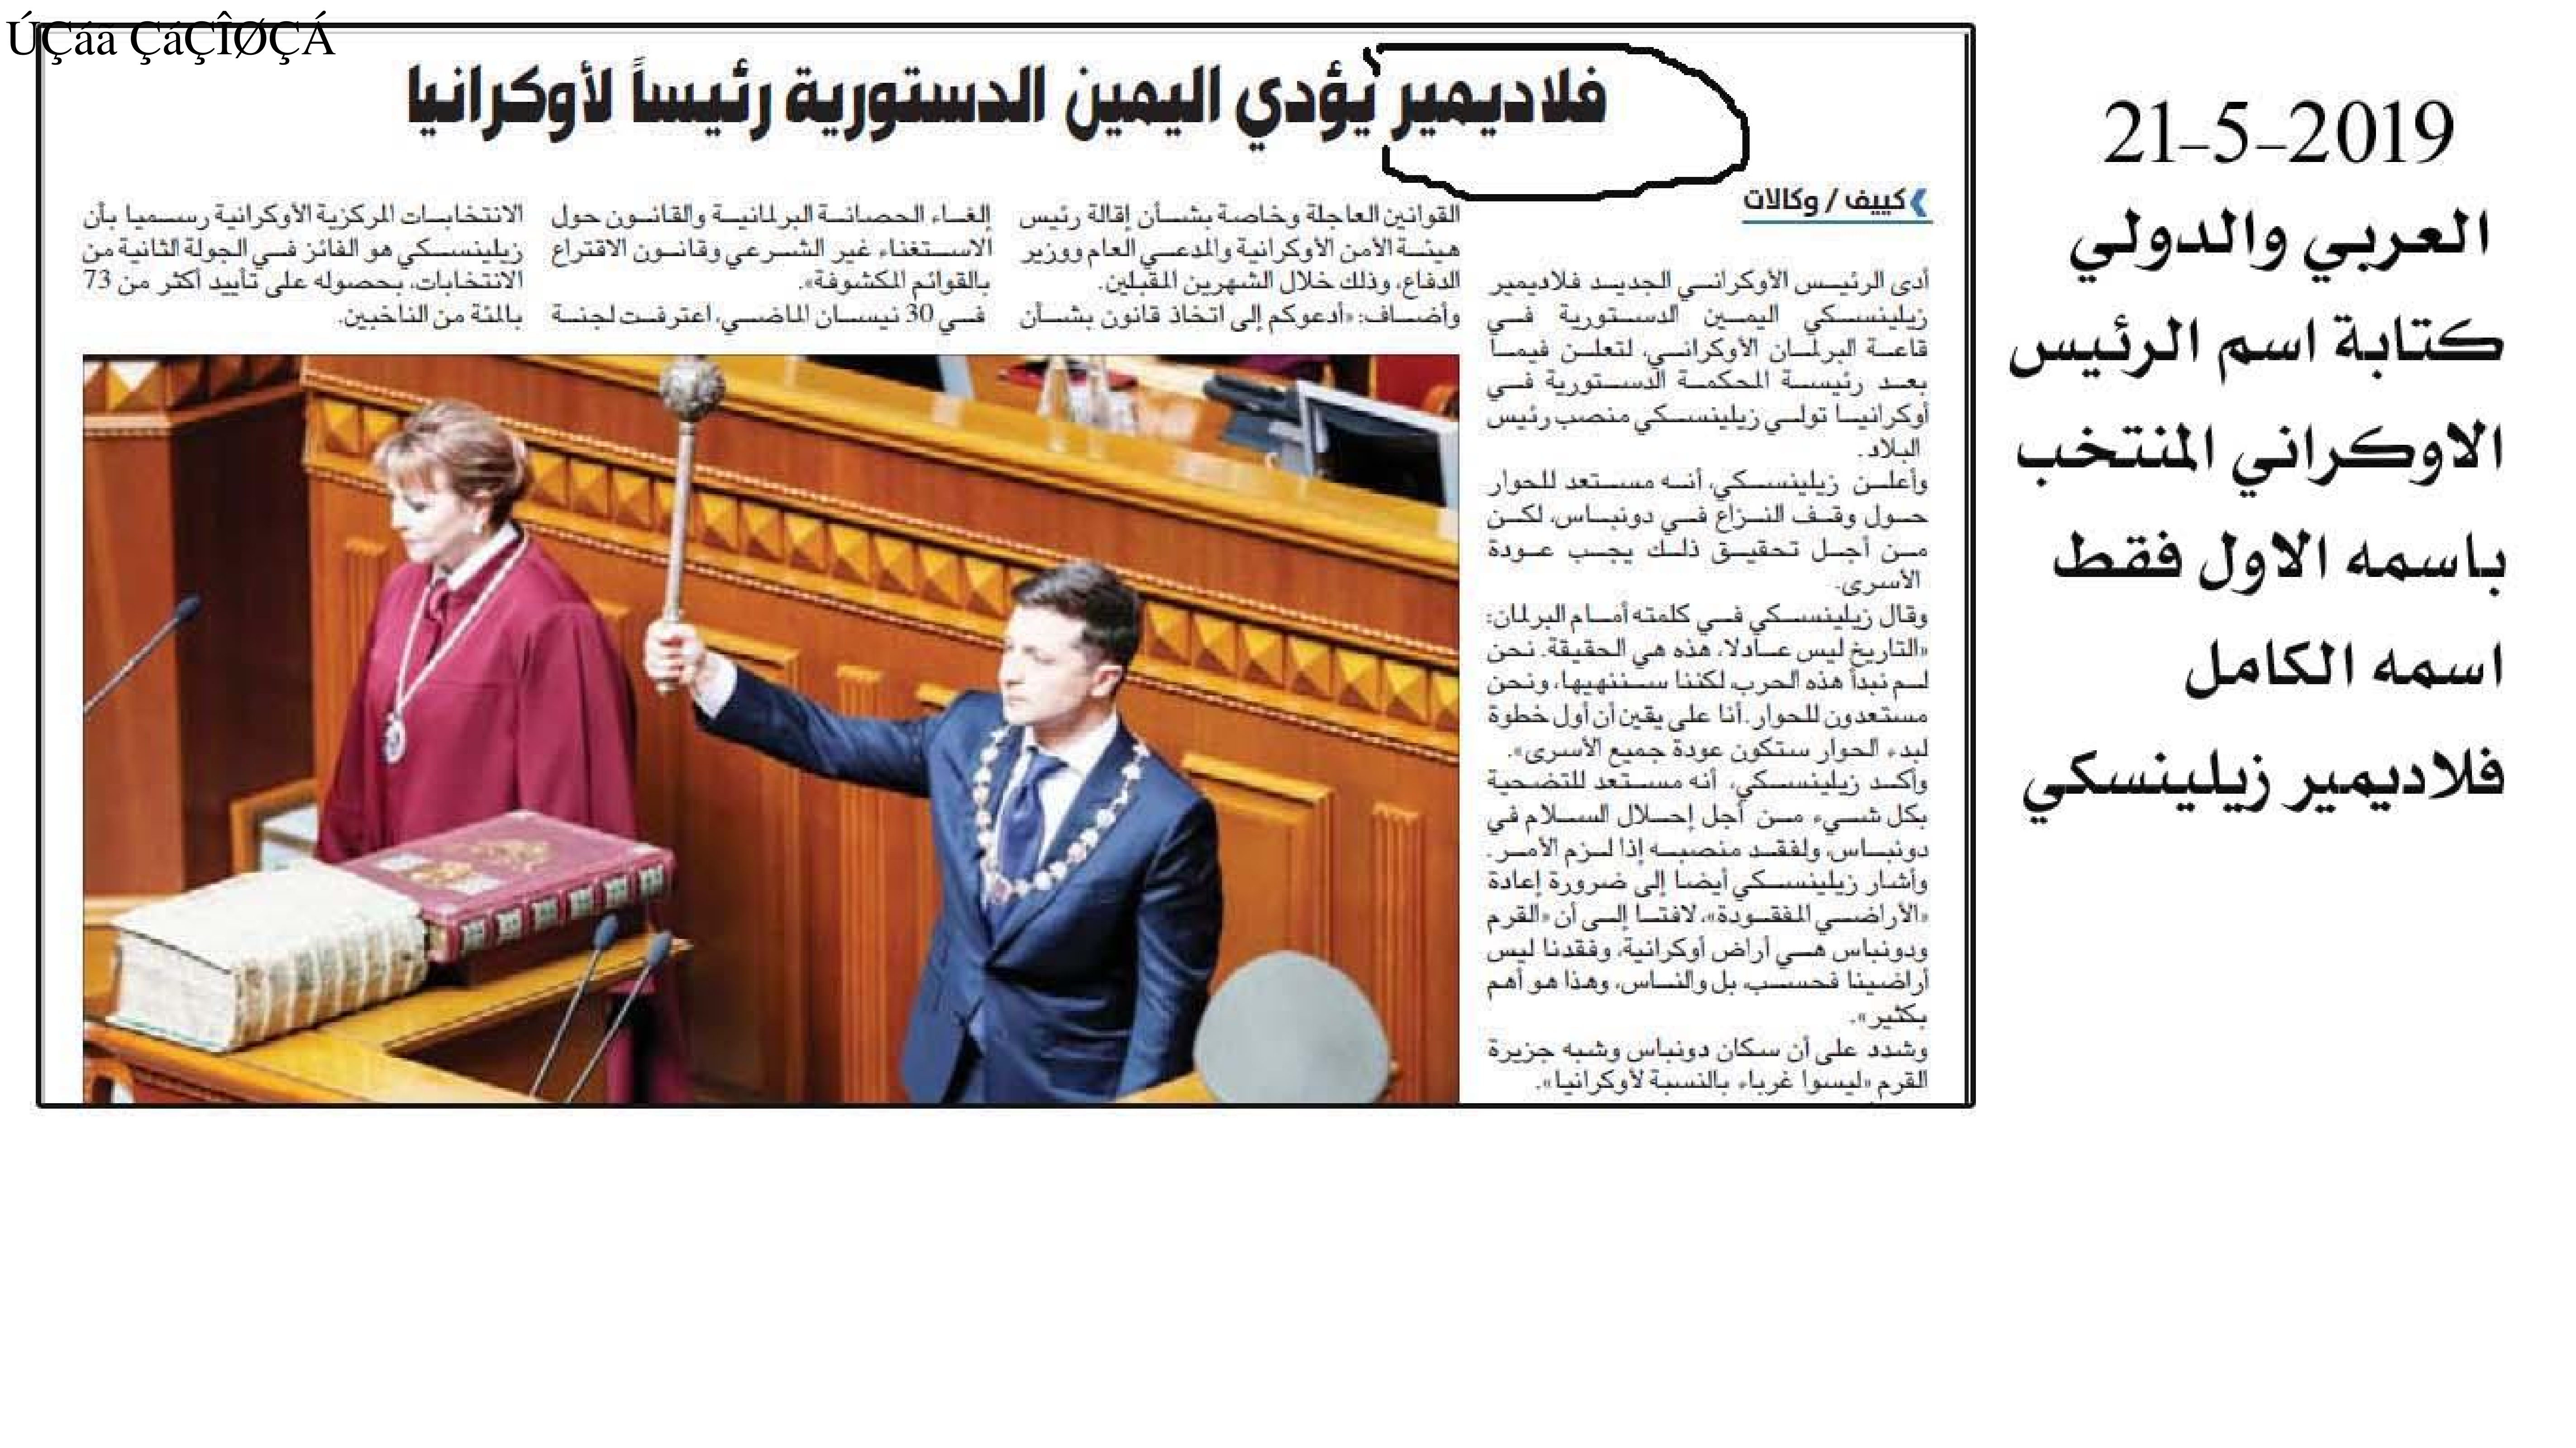 ÚÇáã ÇáÇÎØÇÁ
فلاديمير يؤدي اليمين الدستورية رئيساً لأوكرانيا
كييف / وكالات
أدى الرئيس الأوكراني الجديد فلاديمير
زيلينسكي اليمين الدستورية في
قاعة البرلمان الأوكراني، لتعلن فيما
بعد رئيسة المحكمة الدستورية في
أوكرانيا تولي زيلينسكي منصب رئيس
البلاد.
وأعلن زيلينسكي، أنه مستعد للحوار
حول وقف النزاع في دونباس، لكن
من أجل تحقيق ذلك يجب عودة
الأسرى.
وقال زيلينسكي في كلمته أمام البرلمان:
«التاريخ ليس عادلا، هذه هي الحقيقة. نحن
لم نبدأ هذه الحرب، لكننا سننهيها، ونحن
مستعدون للحوار. أنا على يقين أن أول خطوة
لبدء الحوار ستكون عودة جميع الأسرى».
وأكد زيلينسكي، أنه مستعد للتضحية
بكل شيء من أجل إحلال السلام في
دونباس، ولفقد منصبه إذا لزم الأمر.
وأشار زيلينسكي أيضا إلى ضرورة إعادة
«الأراضي المفقودة»، لافتا إلى أن «القرم
ودونباس هي أراض أوكرانية، وفقدنا ليس
أراضينا فحسب، بل والناس، وهذا هو أهم
بكثير».
وشدد على أن سكان دونباس وشبه جزيرة
القرم «ليسوا غرباء بالنسبة لأوكرانيا».
القوانين العاجلة وخاصة بشأن إقالة رئيس
هيئة الأمن الأوكرانية والمدعي العام ووزير
الدفاع، وذلك خلال الشهرين المقبلين.
وأضاف: «أدعوكم إلى اتخاذ قانون بشأن
إلغاء الحصانة البرلمانية والقانون حول
الاستغناء غير الشرعي وقانون الاقتراع
بالقوائم المكشوفة».
في 30 نيسان الماضي، اعترفت لجنة
الانتخابات المركزية الأوكرانية رسميا بأن
زيلينسكي هو الفائز في الجولة الثانية من
الانتخابات، بحصوله على تأييد أكثر من 73
بالمئة من الناخبين.
21-5-2019
العربي والدولي
كتابة اسم الرئيس
الاوكراني المنتخب
باسمه الاول فقط
اسمه الكامل
فلاديمير زيلينسكي